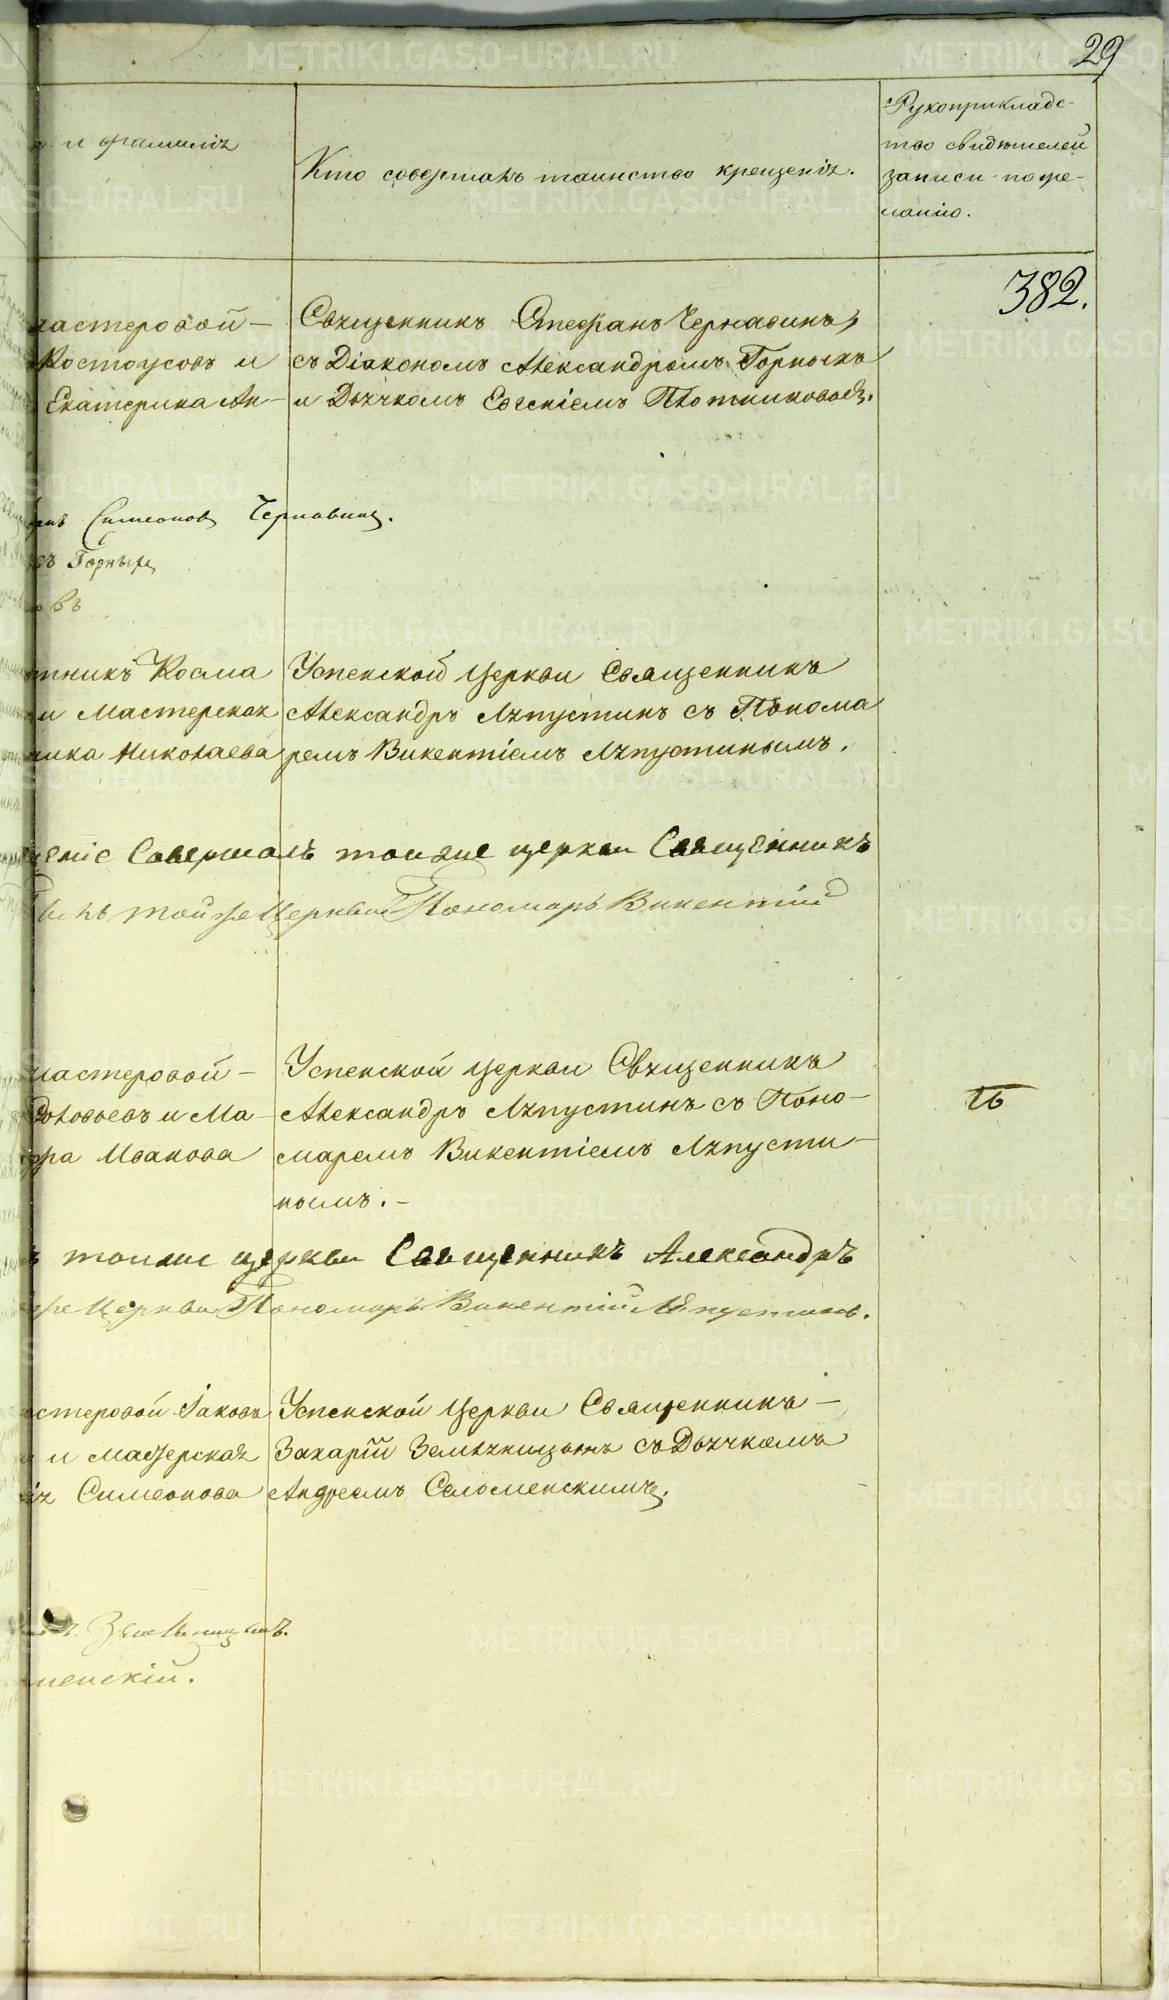 29
и фамилія
Кто совершалъ таинство крещенія.
Рукоприкладс-
тво свидѣтелей
записи по же-
ланію.
382.
мастеровой –
Костоусовъ и
Екатерина Ан-
Священникъ Стефанъ Чернавинъ,
съ Діакономъ Александромъ Горныхъ
и Дьячкомъ Евгеніемъ Плотниковымъ.
Симеоновъ Чернавинъ.
Горныхъ
въ
Косма
и Мастерская
Николаева
Успенской церкви Священникъ
Александръ Ляпустинъ съ Понома
ремъ Викентіемъ Ляпустинымъ.
Совершалъ тоя же церкви Священникъ
той же Церкви Пономарь Викентій
мастеровой –
и Ма-
Иванова
Успенской церкви Священникъ
Александръ Ляпустинъ съ Поно-
маремъ Викентіемъ Ляпусти-
нымъ. –
тоя же церкви Священникъ Александръ
же Церкви Пономарь Викентій Ляпустинъ.
Іаковъ
и Мастерская
Симеонова
Успенской церкви Священникъ –
Захарій Земляницынъ съ Дьячкомъ
Андреемъ Селоменскимъ.
Земляницынъ.
менскій.